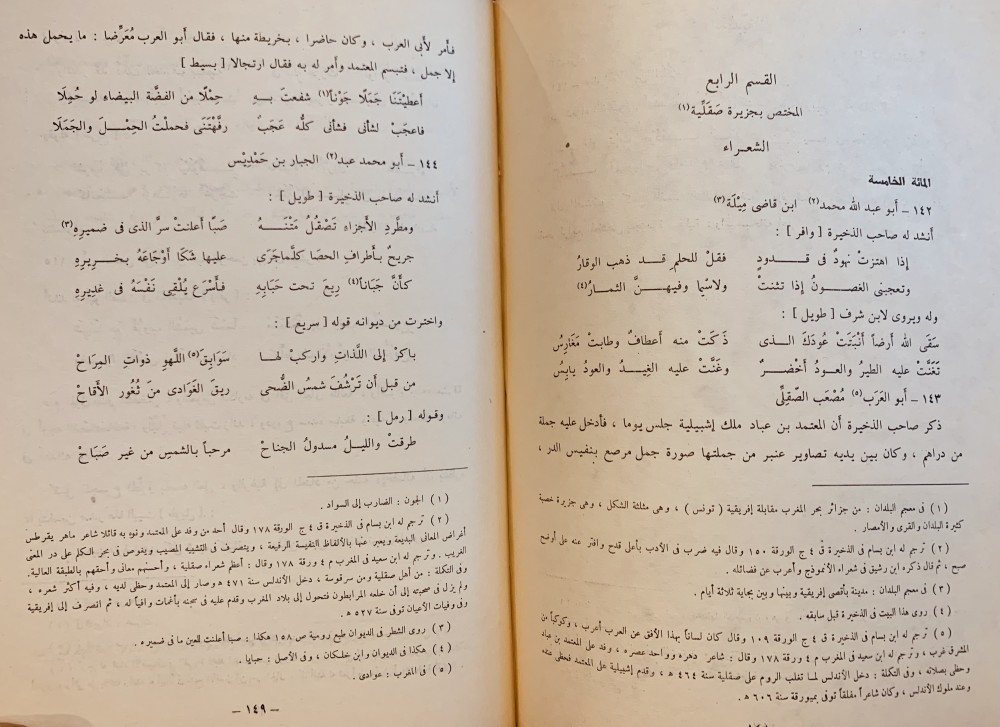 القسم الرابع
المختص بجزيرة صَقَلِّية (١)
الشعراء
المائة الخامسة
١٤٢ – أبو عبد الله محمد (٢) ابن قاضى مِيْلَة (٣)
أنشد له صاحب الذخيرة [ وافر ] :
إذا اهتزتْ نهودٌ فى قـــدودٍ فقلْ للحلمِ قــد ذهب الوقارُ
وتعجبنى الغصــونُ إذا تثنتْ ولاسيّما وفيهــنَّ الثمــارُ (٤)
وله ويروى لابن شرف [ طويل ] :
سَقَى الله أرضاً أَنْبَتَتْ عُودَكَ الــذى ذَكَتْ منه أعطافٌ وطابتْ مَغَارِسُ
تَغَنَّتْ عليه الطيرُ والعــودُ أَخْضَــرٌ وغَنَّتْ عليه الغِيــدُ والعودُ يابِسُ
١٤٣ – أبو العَرَب (٥) مُصْعَب الصِّقِلِّى
ذكر صاحب الذخيرة أن المعتمد بن عباد ملك إشبيلية جلس يوما ، فأدخل عليه جملة
من دراهم ، وكان بين يديه تصاوير عنبر من جملتها صورة جمل مرصع بنفيس الدر ،
(١) فى معجم البلدان : من جزائر بحر المغرب مقابلة إفريقية ( تونس ) ، وهى مثلثة الشكل ، وهى جزيرة خصبة
كثيرة البلدان والقرى والأمصار .
(٢) ترجم له ابن بسام فى الذخيرة ق ٤ ج الورقة ١٥٠ وقال فيه ضرب فى الأدب بأعلى قدح وافتر عنه على أوضح
صبح ، ثم قال ذكره ابن رشيق فى شعراء الأنموذج وأعرب عن فضائله .
(٣) فى معجم البلدان : مدينة بأقصى إفريقية وبينها وبين بجاية ثلاثة أيام .
(٤) روى هذا البيت فى الذخيرة قبل سابقه .
(٥) ترجم له ابن بسام فى الذخيرة ق ٤ ج الورقة ١٠٩ وقال كان لساناً بهذا الأفق عن العرب أعرب ، وكوكباً من
المشرق غرب ، وترجم له ابن سعيد فى المغرب م ٤ ورقة ١٧٨ وقال : شاعر دهره وواحد عصره ، وفد على المعتمد بن عباد
وحظى بصلاته ، وفى التكلة : دخل الأندلس لما تغلب الروم على صقلية سنة ٤٦٤ هـ ، وقدم إشبيلية على المعتمد فحظى عنده
وعند ملوك الأندلس ، وكان شاعراً مفلقاً توفى بميورقة سنة ٦٠٦ هـ .
فأمر لأبى العرب ، وكان حاضرا ، بخريطة منها ، فقال أبو العرب مُعَرِّضا : ما يحمل هذه
إلا جمل ، فتبسم المعتمد وأمر له به فقال ارتجالا [ بسيط ]
أعطيْتَنَا جَمَلًا جَوْناً (١) شفعتَ بــهِ حِمْلًا من الفضَّة البيضاءِ لو حُمِلَا
فاعجَبْ لشأنى فشأنى كلُّه عَجَبٌ رفَّهْتَنَى فحملْتُ الحِمْــلَ والجَمَلَا
١٤٤ – أبو محمد عبد (٢) الجبار بن حَمْدِيْس
أنشد له صاحب الذخيرة [ طويل ] :
ومطَّردِ الأجزاءِ تَصْقُلُ مَتْنَــهُ صَبًا أعلنتْ سرَّ الذى فى ضميرِهِ (٣)
جريحٌ بأطرافِ الحصَا كلَّما جَرَى عليها شَكَا أوْجَاعَهُ بخــرِيرِهِ
كأنَّ جَبَاناً (٤) رِيعَ تحت حَبَابِهِ فأسْرَع يُلْقِى نَفْسَهُ فى غديرِهِ
واخترت من ديوانه قوله [ سريع ] :
باكرْ إلى اللَّذاتِ واركبْ لهــا سَوَابِقَ (٥) اللَّهوِ ذواتِ المِرَاحْ
من قبل أن تَرْشُفَ شمسُ الضُّحى ريقَ الغَوَادى منَ ثُغُورِ الأقاحْ
وقوله [ رمل ] :
طرقتْ والليلُ مسدولُ الجناحْ مرحباً بالشمسِ من غير صَبَاحْ
(١) الجون : الضارب إلى السواد .
(٢) ترجم له ابن بسام فى الذخيرة ق ٤ ج الورقة ١٧٨ وقال أحد من وفد على المعتمد ونوه به قائلا شاعر ماهر يقرطس
أغراض المعانى البديعة ويعبر عنها بالألفاظ النفيسة الرفيعة ، ويتصرف فى التشبيه المصيب ويغوص فى بحر الكلم على در المعنى
الغريب . وترجم له ابن سعيد فى المغرب م ٤ ورقة ١٧٨ وقال : أعظم شعراء صقلية ، وأحسنهم معانى وأحقهم بالطبقة العالية.
وفى التكلة : من أهل صقلية ومن سرقوسة ، دخل الأندلس سنة ٤٧١ هـ وصار إلى المعتمد وحظى لديه ، وفيه أكثر شعره ،
ولم يزل فى صحبته إلى أن خلعه المرابطون فتحول إلى بلاد المغرب وقدم عليه فى سجنه بأغمات وافياً له ، ثم انصرف إلى إفريقية
وفى وفيات الأعيان توفى سنة ٥٢٧ هـ .
(٣) روى الشطر فى الديوان طبع رومية ص ١٥٨ هكذا : صبا أعلنت للعين ما فى ضميره .
(٤) هكذا فى الديوان وابن خلكان ، وفى الأصل : حبايا .
(٥) فى المغرب : عوادى .
– ١٤٩ –